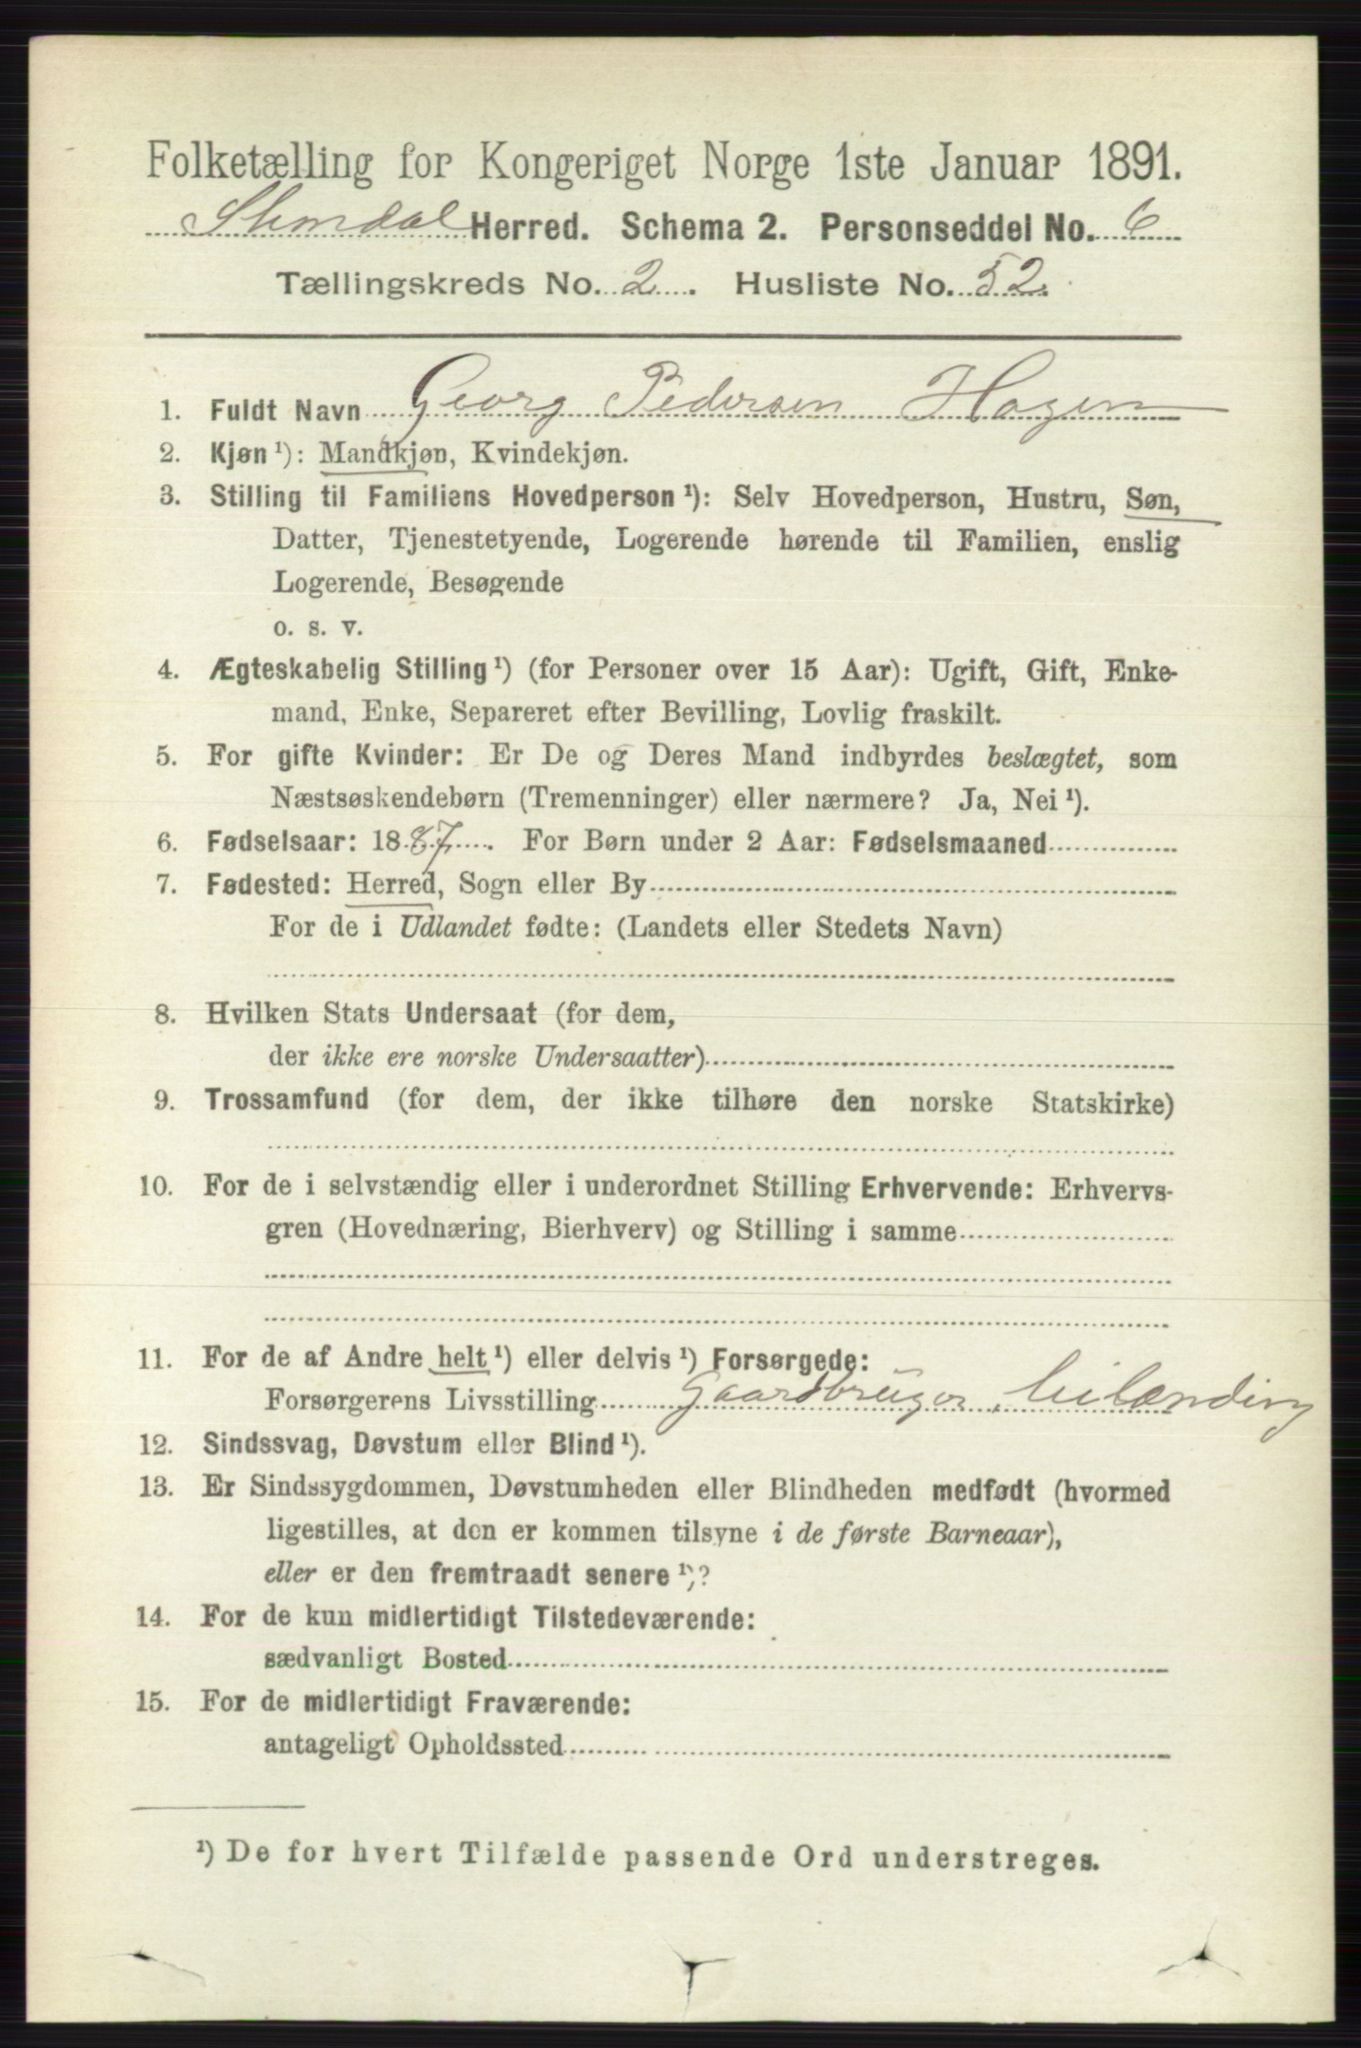 Folketælling for Kongeriget Norge 1ste Januar 1891.
Herred. Schema 2. Personseddel No. 6
Tællingskreds No. 2. Husliste No. 52.
1. Fuldt Navn Georg Pedersen Hagen
2. Kjøn ¹): Mandkjøn, Kvindekjøn.
3. Stilling til Familiens Hovedperson ¹): Selv Hovedperson, Hustru, Søn,
Datter, Tjenestetyende, Logerende hørende til Familien, enslig
Logerende, Besøgende
o. s. v.
4. Ægteskabelig Stilling ¹) (for Personer over 15 Aar): Ugift, Gift, Enke-
mand, Enke, Separeret efter Bevilling, Lovlig fraskilt.
5. For gifte Kvinder: Er De og Deres Mand indbyrdes beslægtet, som
Næstsøskendebørn (Tremenninger) eller nærmere? Ja, Nei ¹).
6. Fødselsaar: 1887. For Børn under 2 Aar: Fødselsmaaned
7. Fødested: Herred, Sogn eller By
For de i Udlandet fødte: (Landets eller Stedets Navn)
8. Hvilken Stats Undersaat (for dem,
der ikke ere norske Undersaatter)
9. Trossamfund (for dem, der ikke tilhøre den norske Statskirke)
10. For de i selvstændig eller i underordnet Stilling Erhvervende: Erhvervs-
gren (Hovednæring, Bierhverv) og Stilling i samme
11. For de af Andre helt ¹) eller delvis ¹) Forsørgede:
Forsørgerens Livsstilling Gaardbruger, leilænding
12. Sindssvag, Døvstum eller Blind ¹).
13. Er Sindssygdommen, Døvstumheden eller Blindheden medfødt (hvormed
ligestilles, at den er kommen tilsyne i de første Barneaar),
eller er den fremtraadt senere ¹)?
14. For de kun midlertidigt Tilstedeværende:
sædvanligt Bosted
15. For de midlertidigt Fraværende:
antageligt Opholdssted
¹) De for hvert Tilfælde passende Ord understreges.